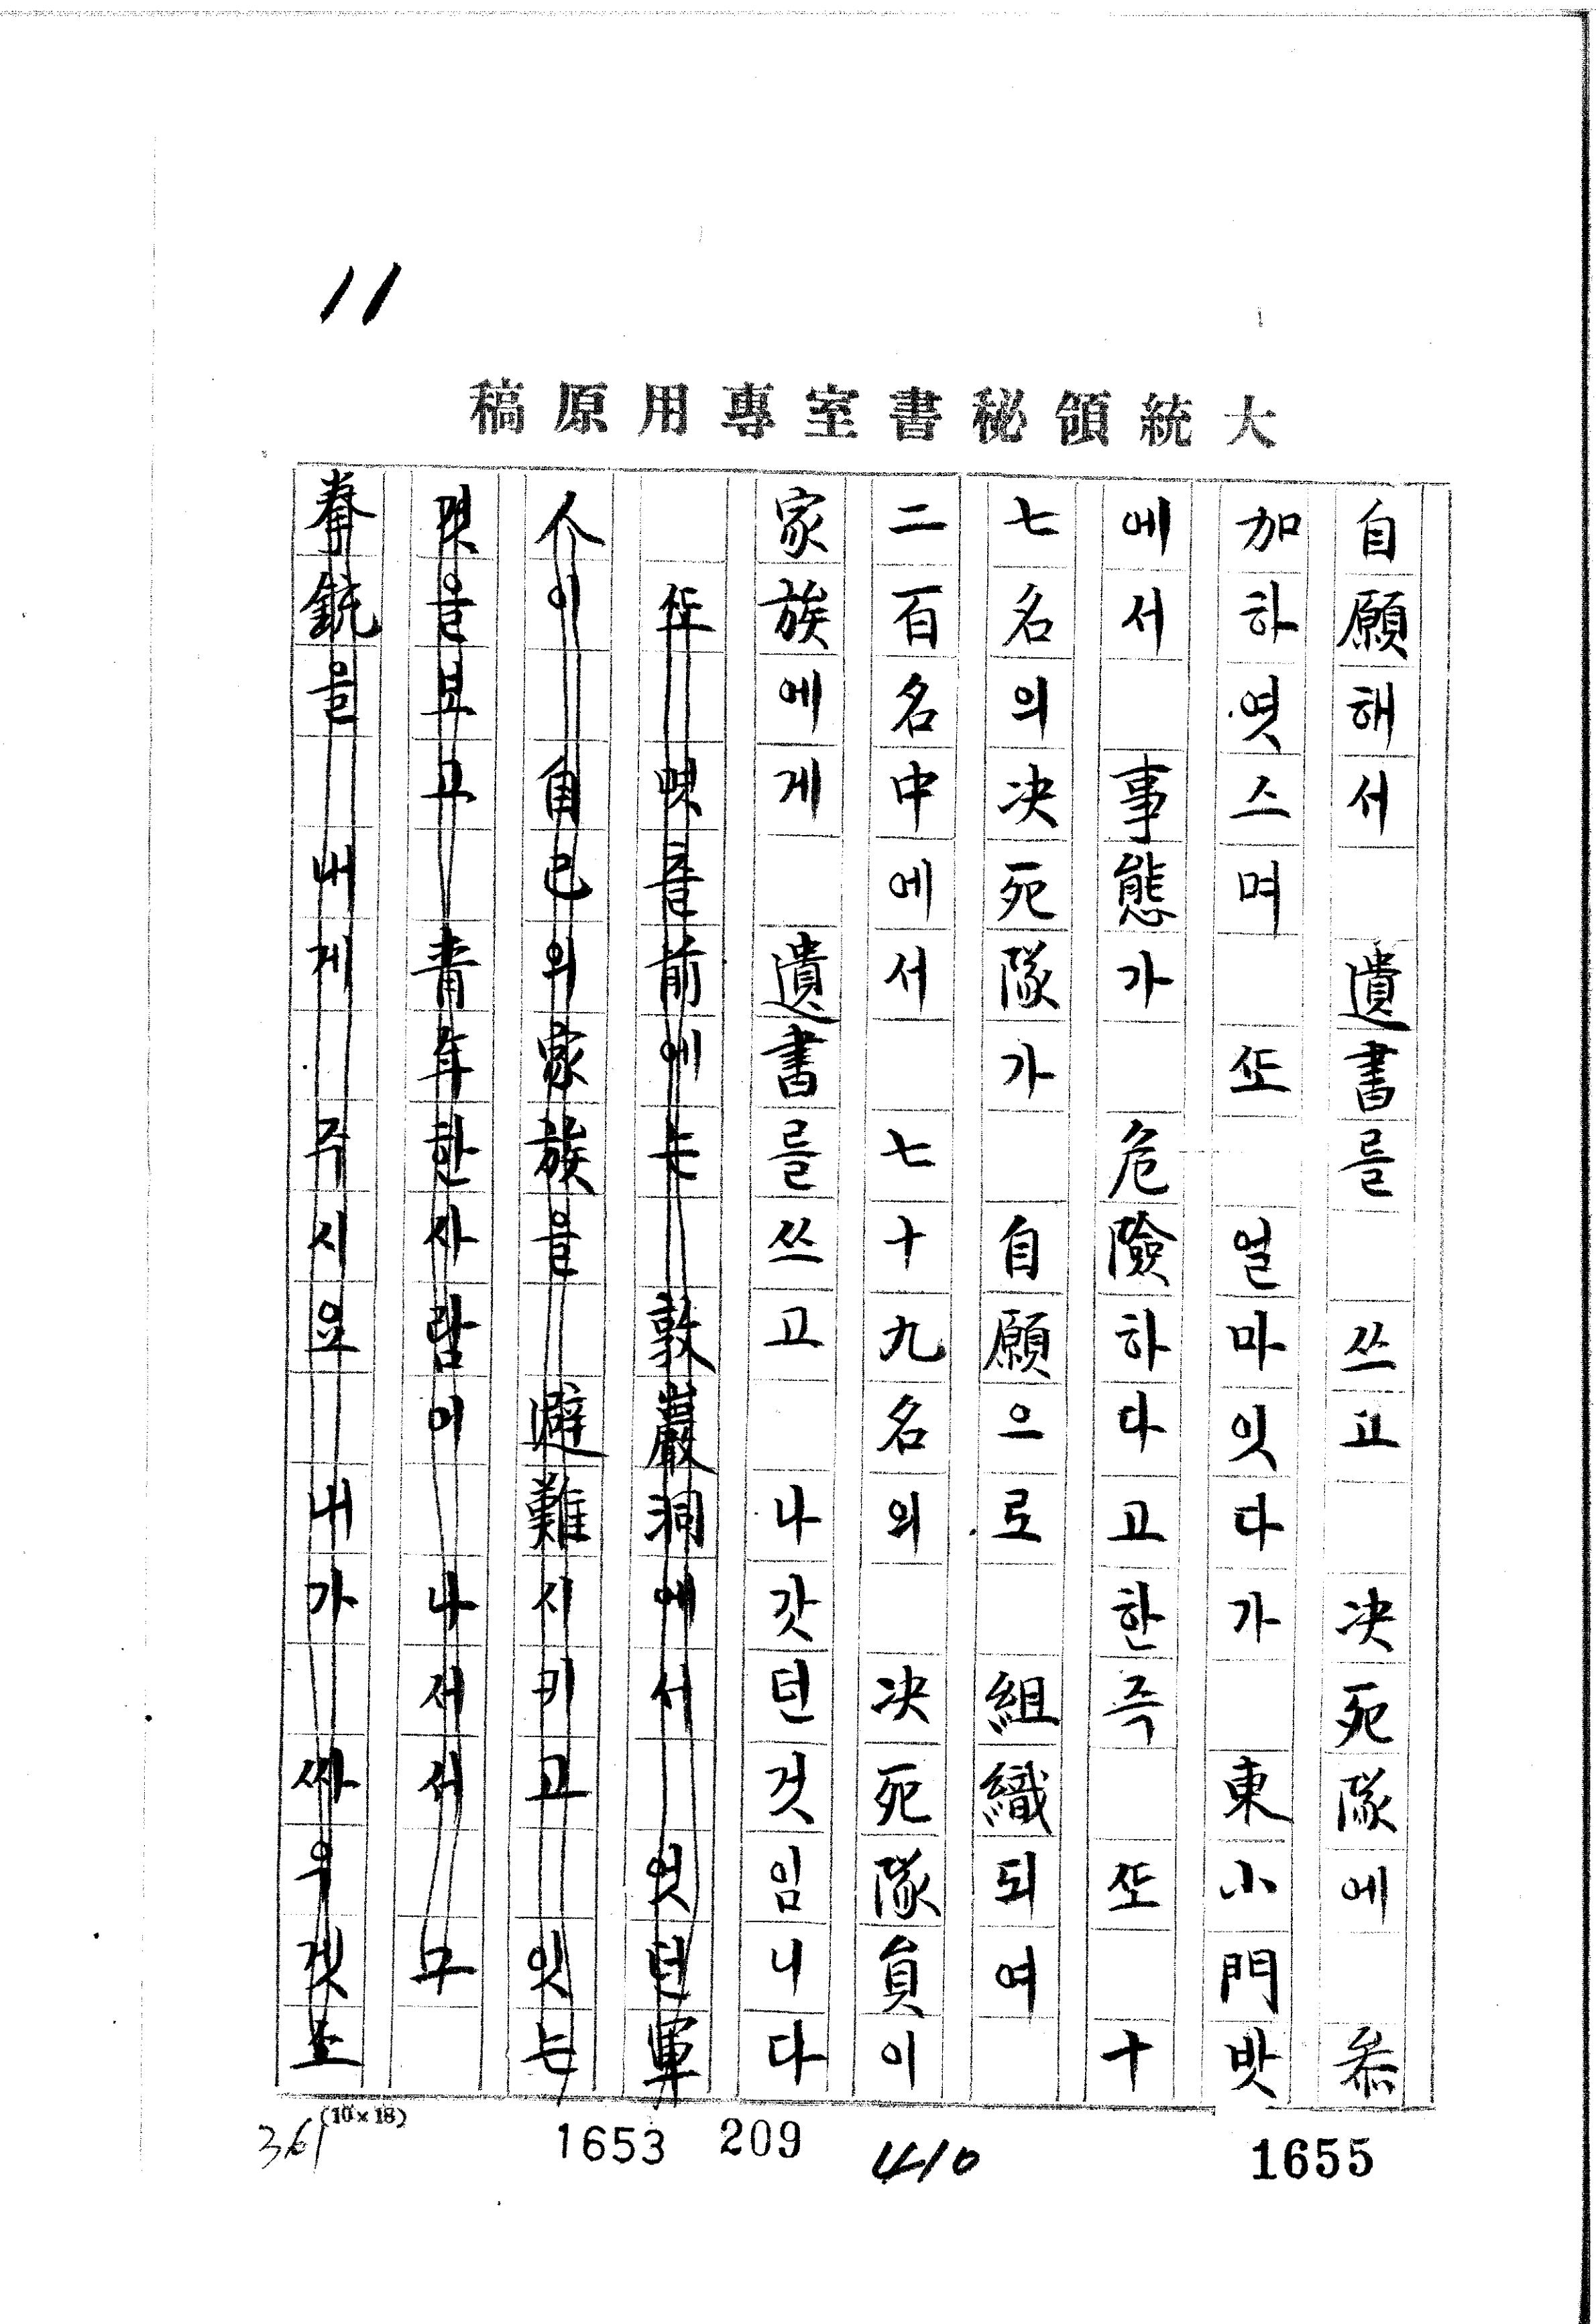 11
大統領秘書室專用原稿
自願해서 遺書를 쓰고 决死隊에 叅
加하엿스며 ᄯᅩ 얼마잇다가 東小門밧
에서 事態가 危險하다고한즉 ᄯᅩ 十
七名의决死隊가 自願으로 組織되여
二百名中에서 七十九名의 决死隊員이
家族에게 遺書를쓰고 나갓던것임니다
ᄯᅩ 몃츨前에는 敦巖洞에서 엇던軍
人이 自己의家族을 避難시키고 잇는
것을보고 靑年한사람이 나서서 그
拳銃을 내게 주시요 내가 싸우겟소
(10×18)
361
1653
209
410
1655